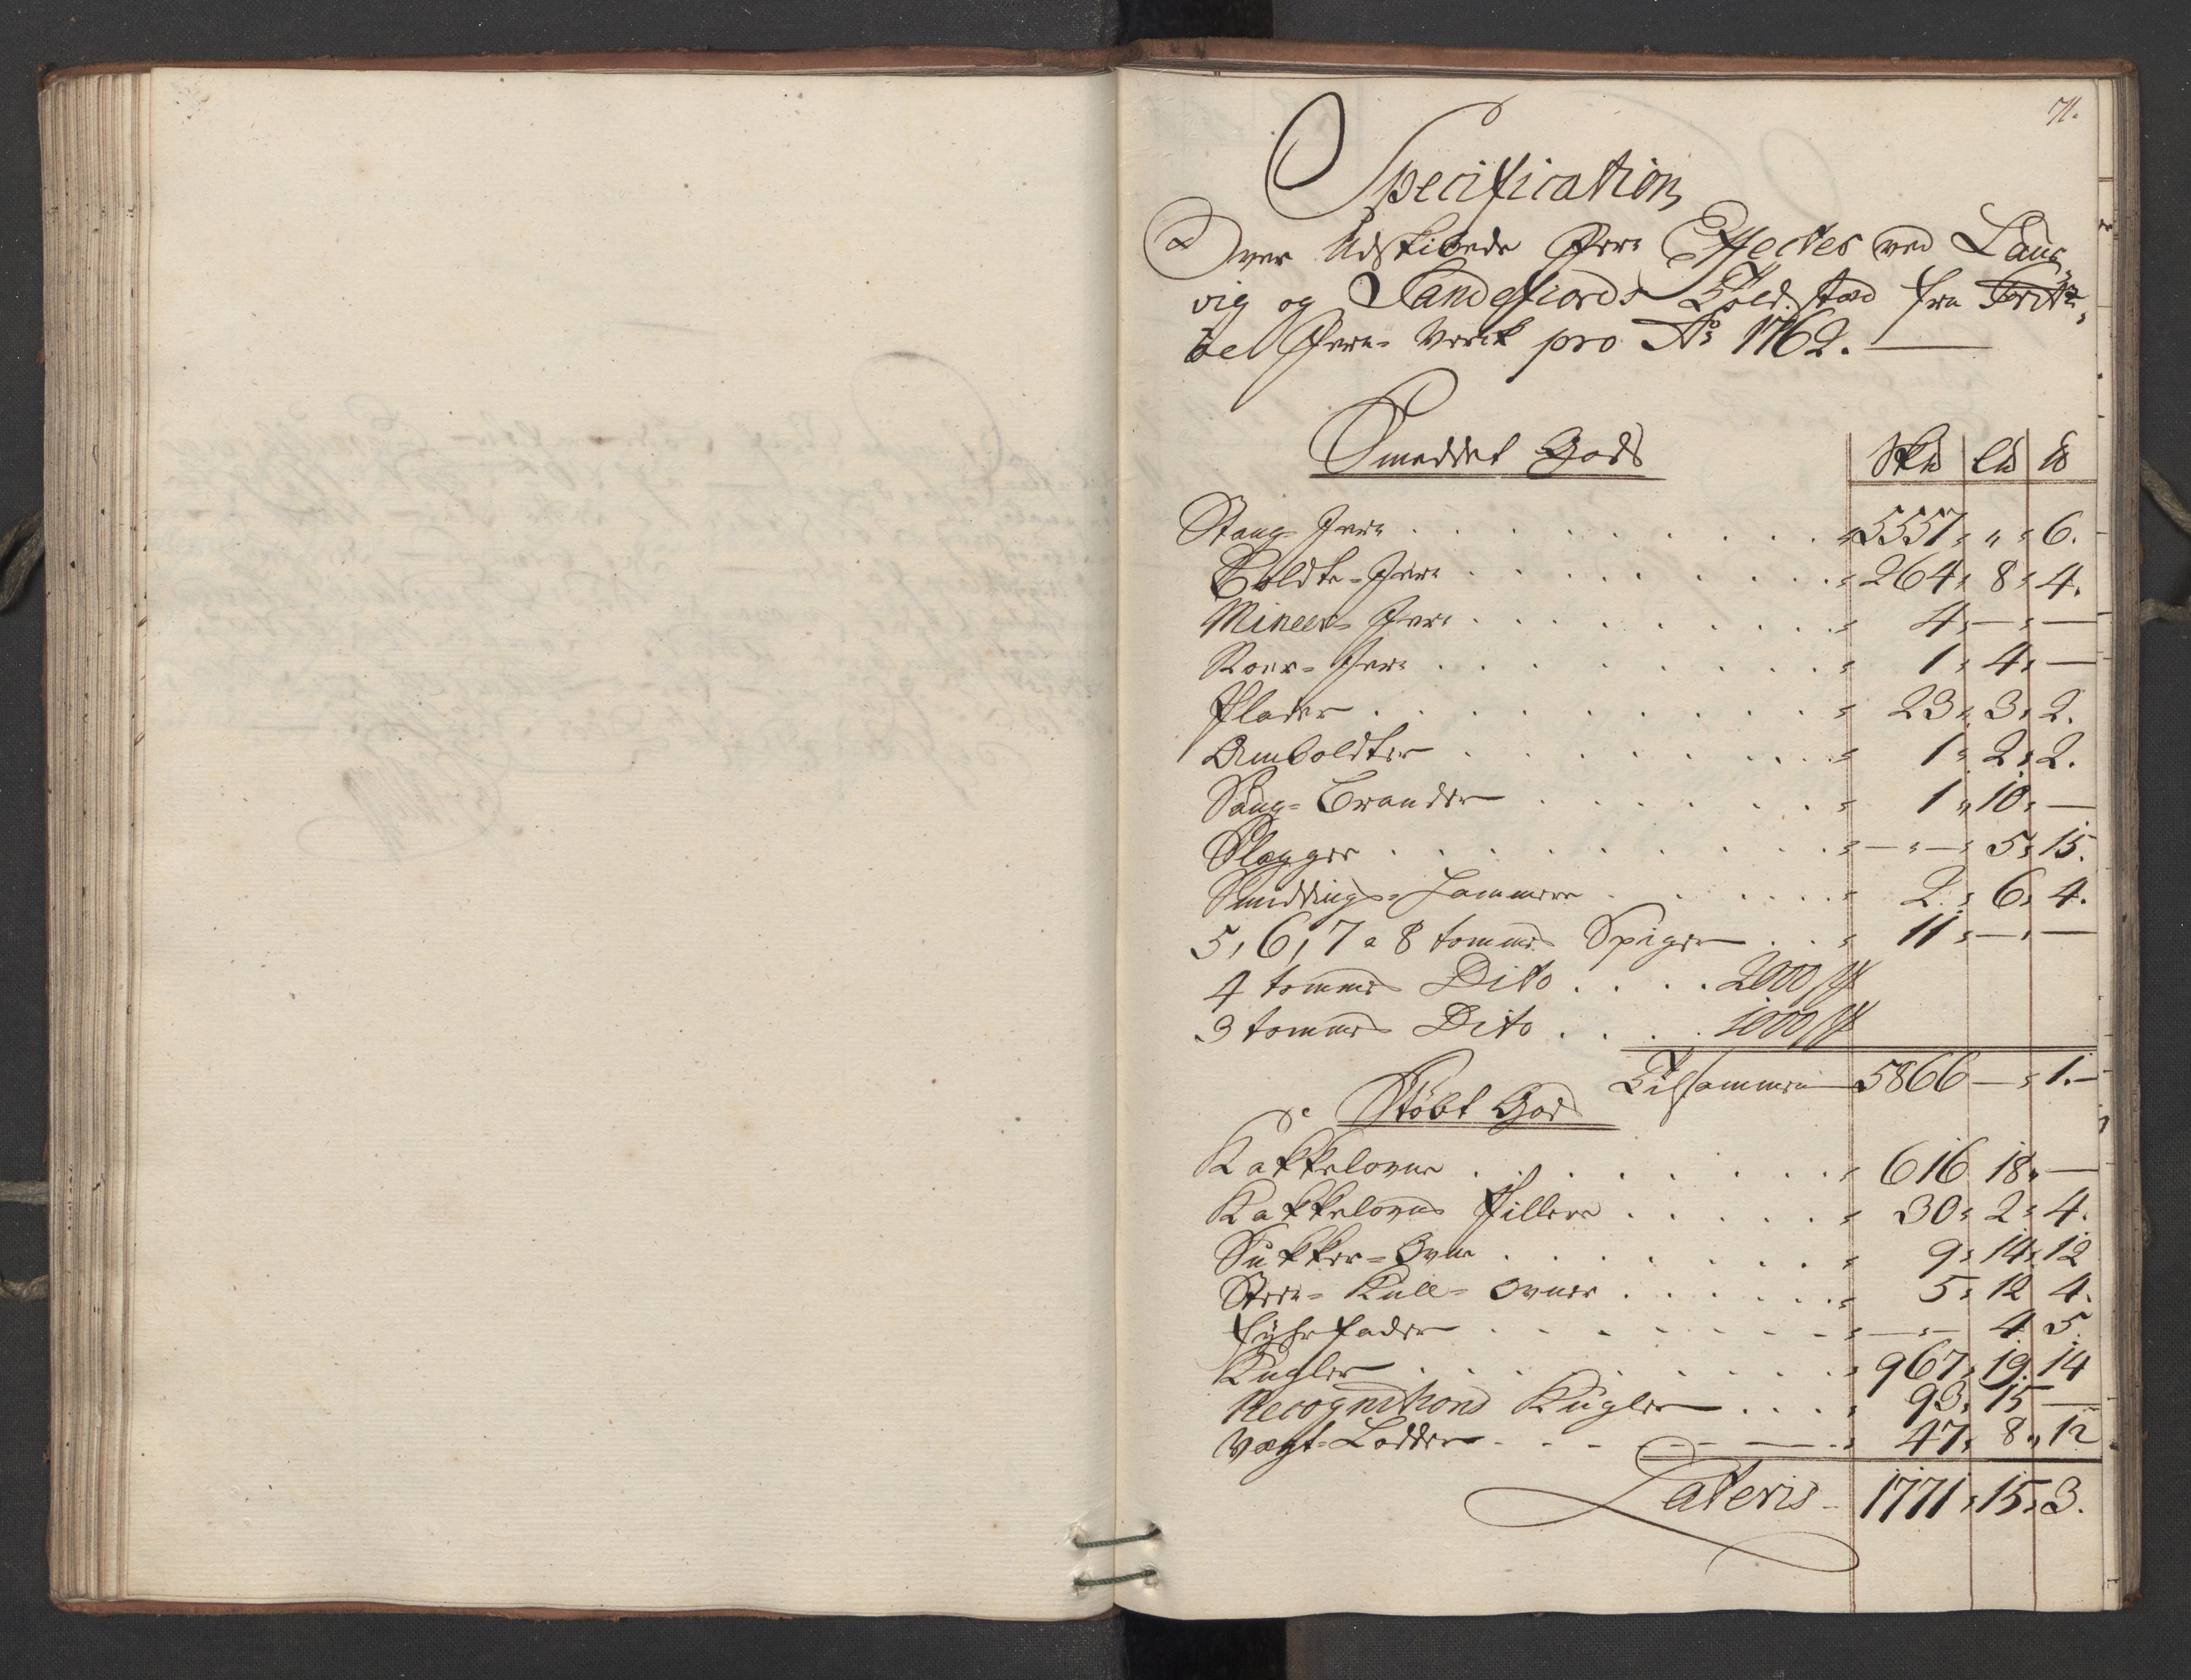 71.
Specification
Over Udskibede Jern Effecter ved Laur,,
vig og Sandefiords Told-stæd fra Fritz,,
öe Jern-Verck pro Ao 1762.
Smeddet Gods Sk℔ L℔ ℔
Stang-Jern . . . . 5557 " 6.
Boldte-Jern . . . . 264 8 4.
Mineer-Jern . . . . 4 — —
Roer-Jern . . . . 1 4 —
Plader . . . . 23 3 2.
Amboldter . . . . 1 2 2.
Saug-Brander . . . . 1 10 —
Slægger . . . . — 5 15.
Smeddings-Hammere . . . . 2 6 4.
5, 6, 7 a 8 tommers Spiger . . 11 — —
4 tommers Dito . . . . 2000 st
3 tommers Dito . . . . 1000 st
Tilsammen 5866 — 1.
Støbt Gods
Kakkelovne . . . . 616 18 —
Kakkelovns Pillere . . . . 30 2 4.
Sukker-Ovne . . . . 9 14 12
Steen-Kull-Ovner . . . . 5 12 4.
Fyhrfader . . . . — 4 5
Kugler . . . . 967 19 14
Recognitions Kugler . . . . 93 15 —
Vægt-Lodder . . . . 47 8 12
Lateris 1771 15 3.